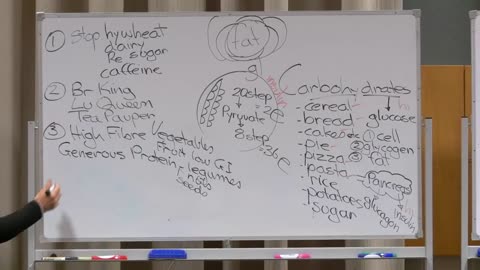 ① Stop hywheat
dairy
Re sugar
caffeine
② Br King
Lu Queen
Tea Pauper
③ High Fibre Vegetables
Fruit low GI
Generous Protein - legumes
nuts
seeds
fat
g
20 step
Pyruvate
8 step
36e
insulin
Carbohydrates
glucose
- cereal
- bread
- cake
- pie
- pizza
- pasta
- rice
- potatoes
- sugar
① cell
② glycogen
③ fat
Pancreas
glucagon
insulin